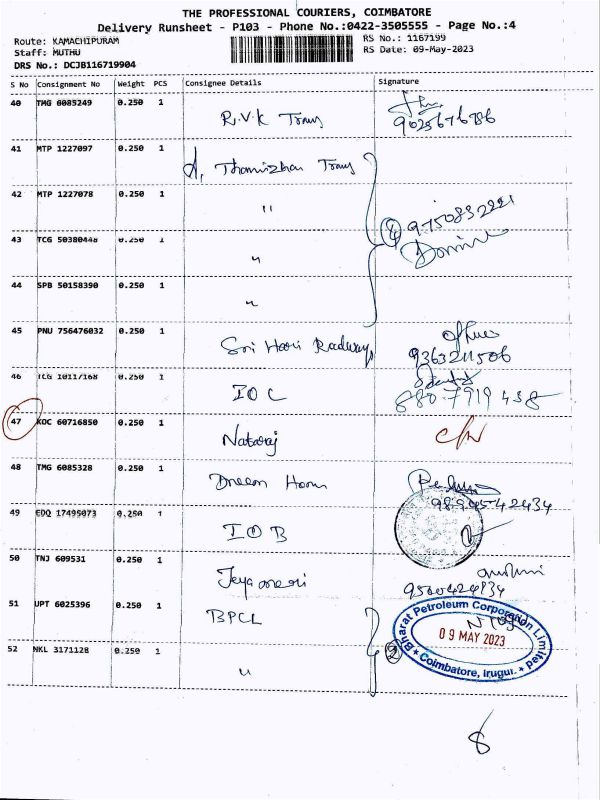 THE PROFESSIONAL COURIERS, COIMBATORE
Delivery Runsheet - P103 - Phone No.:0422-3505555 - Page No.:4
Route: KAMACHIPURAM
RS No.: 1167199
Staff: MUTHU
RS Date: 09-May-2023
DRS No.: DCJB116719904
S No Consignment No Weight PCS Consignee Details Signature
40 TMG 6085249 0.250 1 R.V.K Trans
9025676786
41 MTP 1227097 0.250 1 Thamizhan Trans
42 MTP 1227078 0.250 1 "
④ 9750832221
43 TCG 50380448 0.250 1 "
44 SPB 50158390 0.250 1 "
45 PNU 756476032 0.250 1 Sri Hari Roadways
9363211506
46 TCG 10117168 0.250 1 IOC
880 7919 438
47 KOC 60716850 0.250 1 Nataraj
48 TMG 6085328 0.250 1 Dream Home
9894542434
49 EDQ 17495073 0.250 1 IOB
50 TNJ 609531 0.250 1
9500424934
51 UPT 6025396 0.250 1 BPCL
Bharat Petroleum Corporation Limited
09 MAY 2023
Coimbatore, Irugur.
52 NKL 3171128 0.250 1 "
②
8